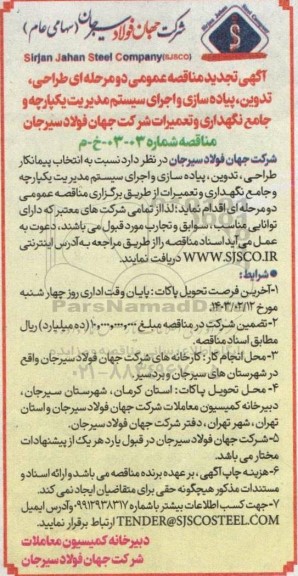 شرکت جهان فولاد سیرجان (سهامی عام)
Sirjan Jahan Steel Company(SJSCO)
آگهی تجدید مناقصه عمومی دو مرحله ای طراحی،
تدوین، پیاده سازی و اجرای سیستم مدیریت یکپارچه و
جامع نگهداری و تعمیرات شرکت جهان فولاد سیرجان
مناقصه شماره ۰۳-۰۳-خ-م
شرکت جهان فولاد سیرجان در نظر دارد نسبت به انتخاب پیمانکار
طراحی، تدوین، پیاده سازی و اجرای سیستم مدیریت یکپارچه
و جامع نگهداری و تعمیرات از طریق برگزاری مناقصه عمومی
دو مرحله ای اقدام نماید؛ لذا از تمامی شرکت های معتبر که دارای
توانایی مناسب، سوابق و تجارب مورد قبول می باشند، دعوت به
عمل می آید اسناد مناقصه را از طریق مراجعه به آدرس اینترنتی
WWW.SJSCO.IR دریافت نمایند.
شرایط:
۱-آخرین فرصت تحویل پاکات: پایان وقت اداری روز چهار شنبه
مورخ ۱۴۰۳/۰۲/۱۲.
۲-تضمین شرکت در مناقصه مبلغ ۱۰,۰۰۰,۰۰۰,۰۰۰ (ده میلیارد) ریال
مطابق اسناد مناقصه.
۳- محل انجام کار: کارخانه های شرکت جهان فولاد سیرجان واقع
در شهرستان های سیرجان و بردسیر.
۴- محل تحویل پاکات: استان کرمان، شهرستان سیرجان،
دبیرخانه کمیسیون معاملات شرکت جهان فولاد سیرجان و استان
تهران، شهر تهران، دفتر شرکت جهان فولاد سیرجان.
۵-شرکت جهان فولاد سیرجان در قبول یا رد هر یک از پیشنهادات
مختار می باشد.
۶-هزینه چاپ آگهی، بر عهده برنده مناقصه می باشد و ارائه اسناد و
مستندات مذکور هیچگونه حقی برای متقاضیان ایجاد نمی کند.
۷-جهت کسب اطلاعات بیشتر با شماره ۰۹۹۱۲۹۳۸۳۱۷ و آدرس ایمیل
TENDER@SJSCOSTEEL.COM ارتباط برقرار نمایید.
دبیرخانه کمیسیون معاملات
شرکت جهان فولاد سیرجان